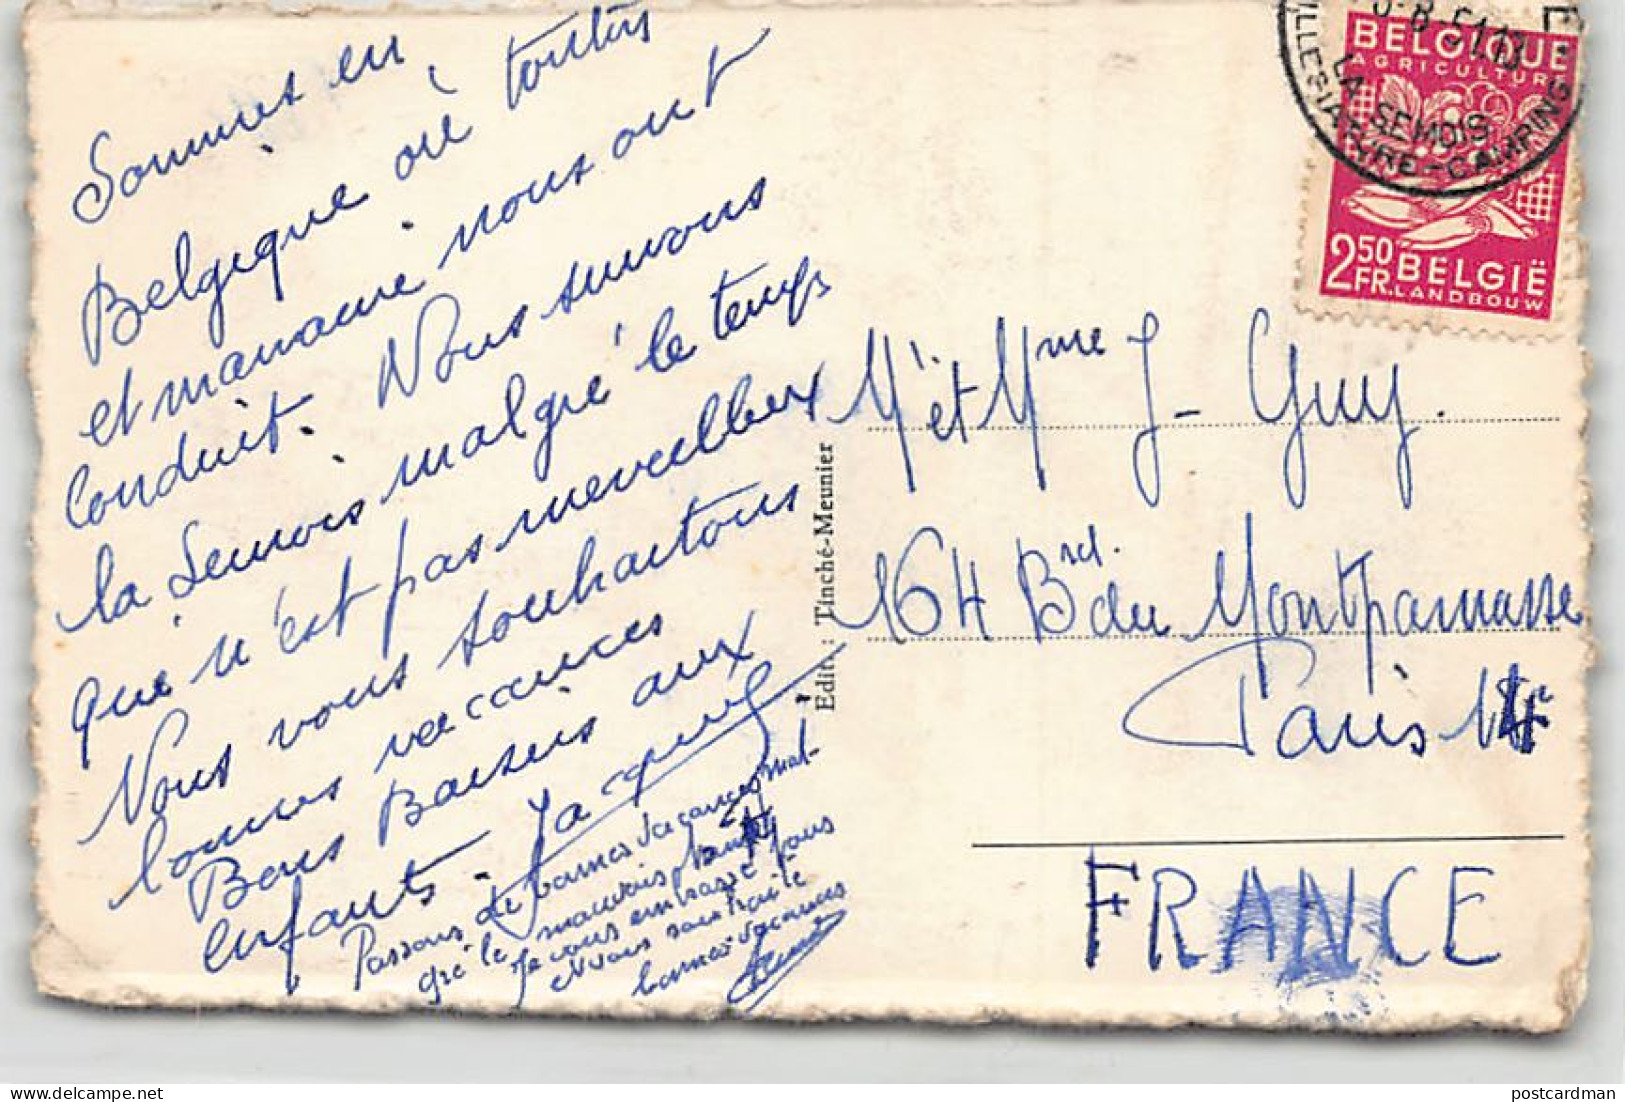 Sommes en
Belgique où toutes
et maman nous ont
conduit. Nous suivons
la Semois malgré le temps
qui n'est pas merveilleux
Nous vous souhaitons
bonnes vacances
Bons Baisers aux
enfants. Jacques
Passons de bonnes vacances mal-
gré le mauvais temps
Je vous embrasse tous
et vous souhaite
bonnes vacances
Edit. : Tinché-Meunier
BELGIQUE
AGRICULTURE
2.50 FR. BELGIË
LANDBOUW
LA SEMOIS
CAMPING
M. et Mme J. Guy.
164 Brd. du Montparnasse
Paris 14e
FRANCE
postcardman